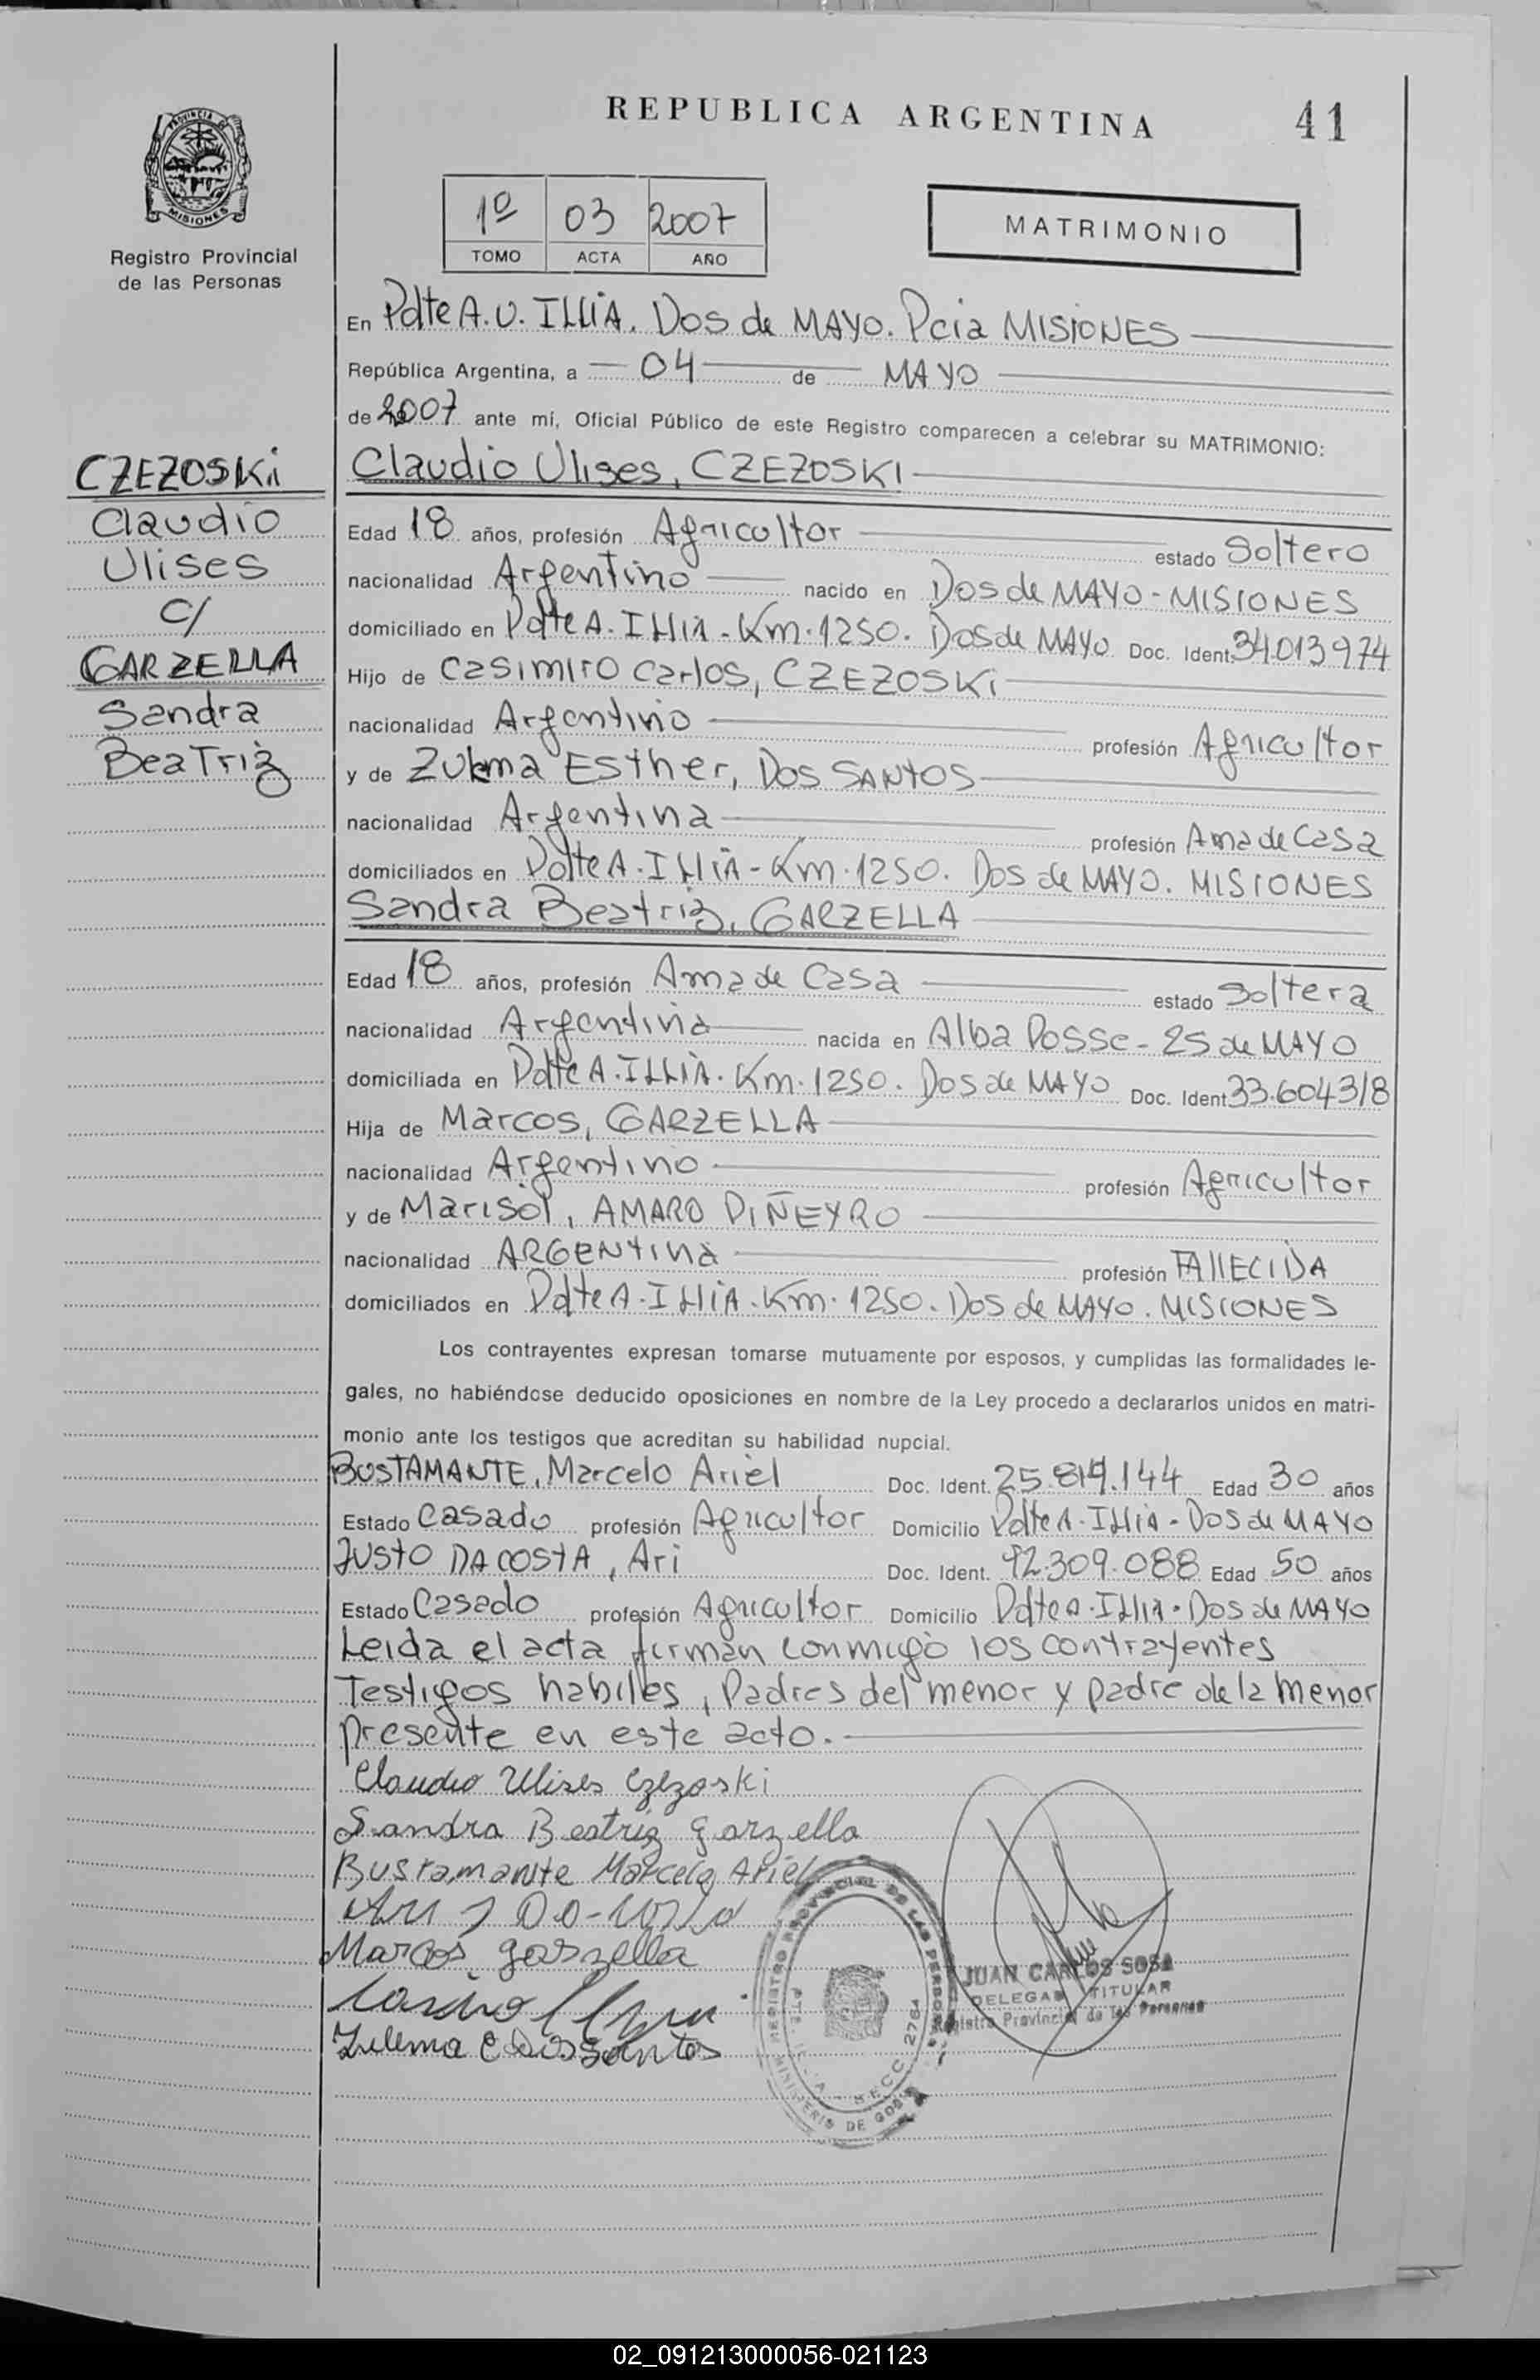 REPUBLICA ARGENTINA
41
PROVINCIA DE MISIONES
Registro Provincial
de las Personas
1º 03 2007
TOMO ACTA AÑO
MATRIMONIO
En Pdte A. U. ILLIA. Dos de MAYO. Pcia MISIONES
República Argentina, a 04 de MAYO
de 2007 ante mí, Oficial Público de este Registro comparecen a celebrar su MATRIMONIO:
CZEZOSKi
Claudio
Ulises
C/
GARZELLA
Sandra
BeaTriz
Claudio Ulises, CZEZOSKI
Edad 18 años, profesión Agricultor estado Soltero
nacionalidad Argentino nacido en Dos de MAYO - MISIONES
domiciliado en Pdte A. Illia - Km. 1250. Dos de MAYO Doc. Ident. 34.013974
Hijo de Casimiro Carlos, CZEZOSKi
nacionalidad Argentino profesión Agricultor
y de Zulma Esther, DOS SANTOS
nacionalidad Argentina profesión Ama de Casa
domiciliados en Pdte A. Illia - Km. 1250. Dos de MAYO. MISIONES
Sandra Beatriz, GARZELLA
Edad 18 años, profesión Ama de Casa estado Soltera
nacionalidad Argentina nacida en Alba Posse - 25 de MAYO
domiciliada en Pdte A. ILLIA. Km. 1250. Dos de MAYO Doc. Ident. 33.604318
Hija de Marcos, GARZELLA
nacionalidad Argentino profesión Agricultor
y de Marisol, AMARO PIÑEYRO
nacionalidad ARGENTINA profesión FALLECIDA
domiciliados en Pdte A. Illia. Km. 1250. Dos de MAYO. MISIONES
Los contrayentes expresan tomarse mutuamente por esposos, y cumplidas las formalidades le-
gales, no habiéndose deducido oposiciones en nombre de la Ley procedo a declararlos unidos en matri-
monio ante los testigos que acreditan su habilidad nupcial.
BUSTAMANTE, Marcelo Ariel Doc. Ident. 25.819.144 Edad 30 años
Estado Casado profesión Agricultor Domicilio Pdte A. Illia - Dos de MAYO
JUSTO DA COSTA, Ari Doc. Ident. 92.309.088 Edad 50 años
Estado Casado profesión Agricultor Domicilio Pdte A. Illia - Dos de MAYO
Leida el acta firman conmigo los contrayentes
Testigos habiles, Padres del menor y padre de la menor
presente en este acto.
Claudio Ulises Czezoski
Sandra Beatriz garzella
Bustamante Marcelo Ariel
Marcos garzella
Zulema E Dos Santos
REGISTRO PROVINCIAL DE LAS PERSONAS
SECC. 2764
MINISTERIO DE GOB
JUAN CARLOS SOSA
DELEGADO TITULAR
Registro Provincial de las Personas
02_091213000056-021123